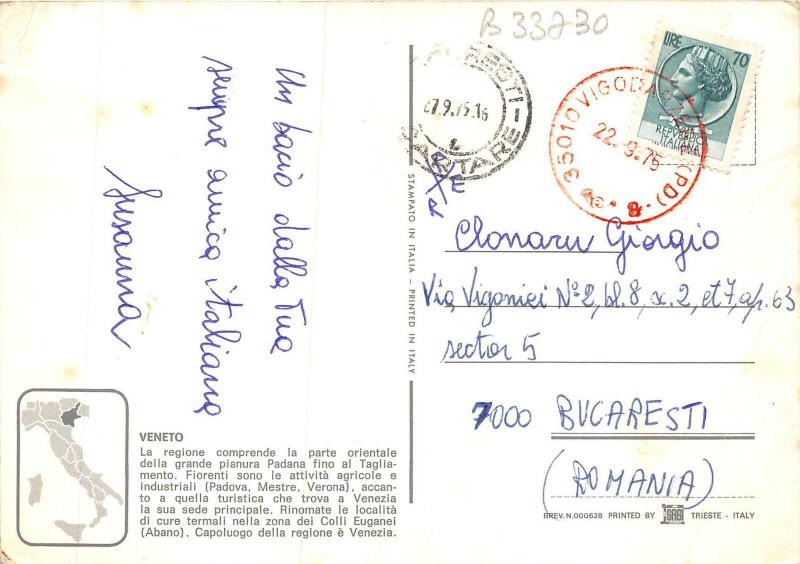 B 33730
Un bacio dalla tua
sempre amica italiana
Susanna
VENETO
La regione comprende la parte orientale
della grande pianura Padana fino al Taglia-
mento. Fiorenti sono le attività agricole e
industriali (Padova, Mestre, Verona), accan-
to a quella turistica che trova a Venezia
la sua sede principale. Rinomate le località
di cure termali nella zona dei Colli Euganei
(Abano). Capoluogo della regione è Venezia.
STAMPATO IN ITALIA - PRINTED IN ITALY
CARTARE
35010 VIGODARZERE (PD)
22.9.75
LIRE 70
REPUBBLICA
ITALIANA
Clonaru Giorgio
Via Vigoniei N°2, bl.8, sc.2, et7, ap.63
sector 5
7000 BUCARESTI
(ROMANIA)
BREV. N.000628 PRINTED BY SAGI TRIESTE - ITALY